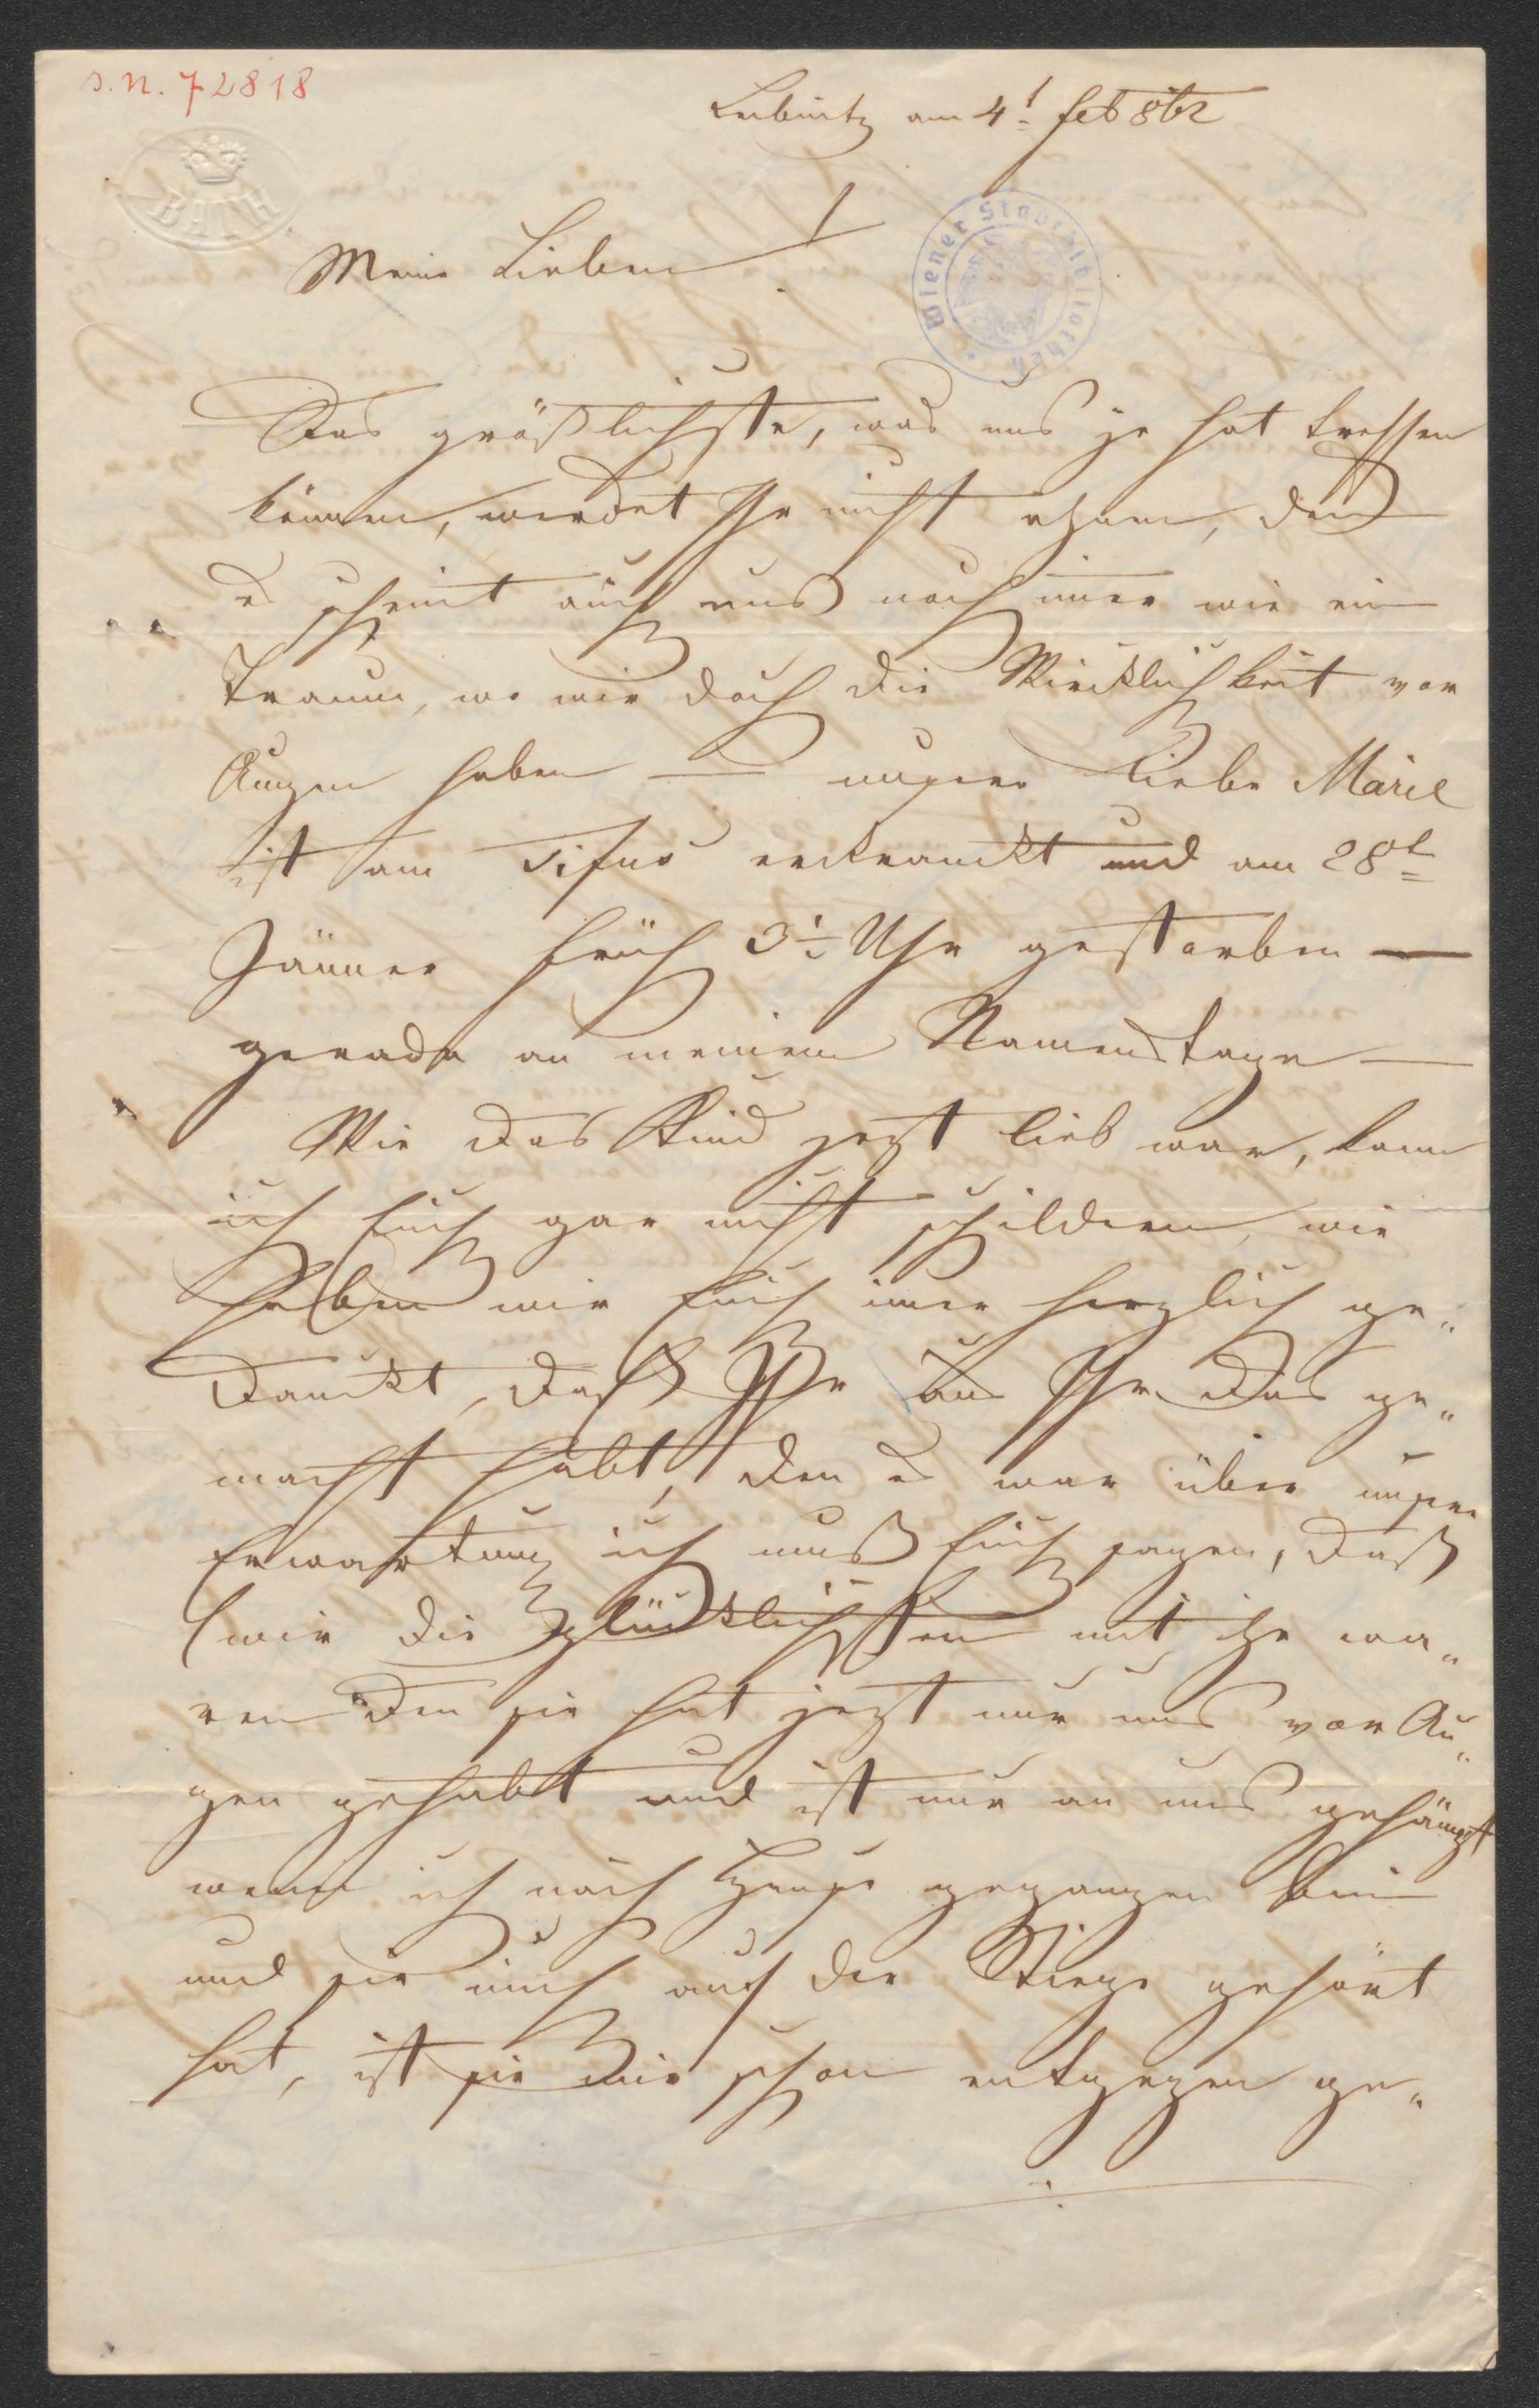 J.N. 72818
BATH
Leibnitz am 4t feb 862
Meine Lieben!
Wiener Stadtbibliothek
Das gräßlichste, was uns je hat treffen
können, werdet Ihr nicht ahnen, den
es scheint auch uns noch imer wie ein
Traum, wo wir doch die Wircklichkeit vor
Augen haben — unsere liebe Marie
ist am Tifus erkranckt und am 28t
Jänner früh 3½ Uhr gestorben —
gerade an meinem Namenstage —
Wie das Kind jezt lieb war, kann
ich Euch gar nicht schildern, wie
haben wir Euch imer herzlich ge„
danckt, daß Ihr aus Ihr das ge„
macht habt, den es war über unsere
Erwartung ich muß Euch sagen, daß
wir die glücklichsten mit ihr wa„
ren den sie hat jezt nur uns vor Au„
gen gehabt und ist nur an uns gehängt
wenn ich nach Hause gegangen bin
und sie mich auf der Stiege gehört
hat, ist sie mir schon entgegen ge„